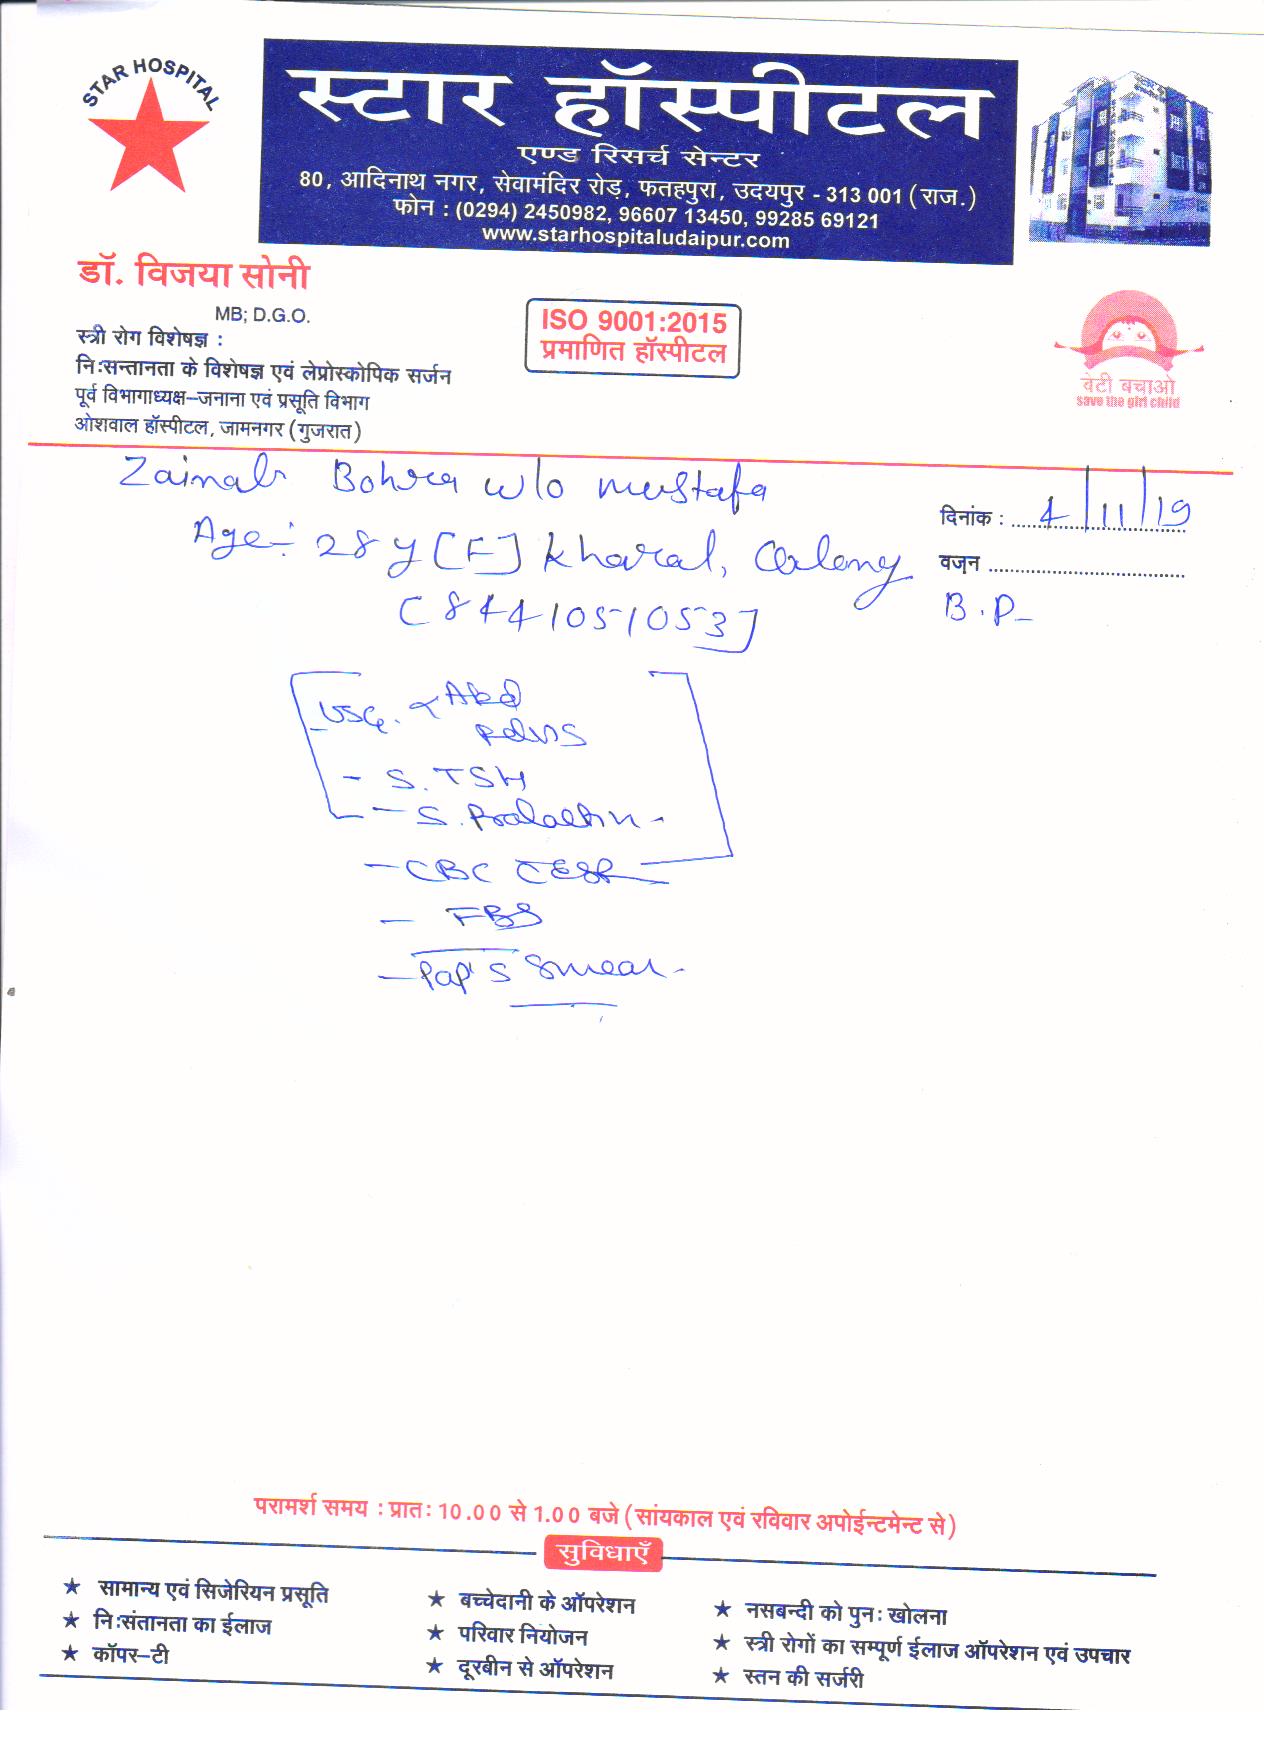 STAR HOSPITAL
स्टार हॉस्पीटल
एण्ड रिसर्च सेन्टर
80, आदिनाथ नगर, सेवामंदिर रोड़, फतहपुरा, उदयपुर - 313 001 (राज.)
फोन : (0294) 2450982, 96607 13450, 99285 69121
www.starhospitaludaipur.com
डॉ. विजया सोनी
MB; D.G.O.
स्त्री रोग विशेषज्ञ :
निःसन्तानता के विशेषज्ञ एवं लेप्रोस्कोपिक सर्जन
पूर्व विभागाध्यक्ष–जनाना एवं प्रसूति विभाग
ओशवाल हॉस्पीटल, जामनगर (गुजरात)
ISO 9001:2015
प्रमाणित हॉस्पीटल
बेटी बचाओ
save the girl child
Zainab Bohra w/o mustafa
दिनांक : 4/11/19
Age:- 28 y [F] Kharal, Colony
वज़न
[8441051053]
B.P-
USG. Abd
Pelvis
- S. TSH
- S. Prolactin -
- CBC C ESR
- FBS
- Pap's Smear -
परामर्श समय : प्रातः 10.00 से 1.00 बजे (सांयकाल एवं रविवार अपोईन्टमेन्ट से)
सुविधाएँ
★ सामान्य एवं सिजेरियन प्रसूति
★ निःसंतानता का ईलाज
★ कॉपर–टी
★ बच्चेदानी के ऑपरेशन
★ परिवार नियोजन
★ दूरबीन से ऑपरेशन
★ नसबन्दी को पुनः खोलना
★ स्त्री रोगों का सम्पूर्ण ईलाज ऑपरेशन एवं उपचार
★ स्तन की सर्जरी